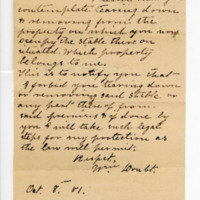 contemplate tearing down
& removing from the
property on which you now
occupy the stable there on
situated. Which property
belongs to me.
This is to notify you that
I forbid you tearing down
or removing said stable or
any part thereof from
said premises & if done by
you I will take such legal
steps for my protection as
the law will permit.
Respct.
Wm Doubt.
Oct. 8th 81.